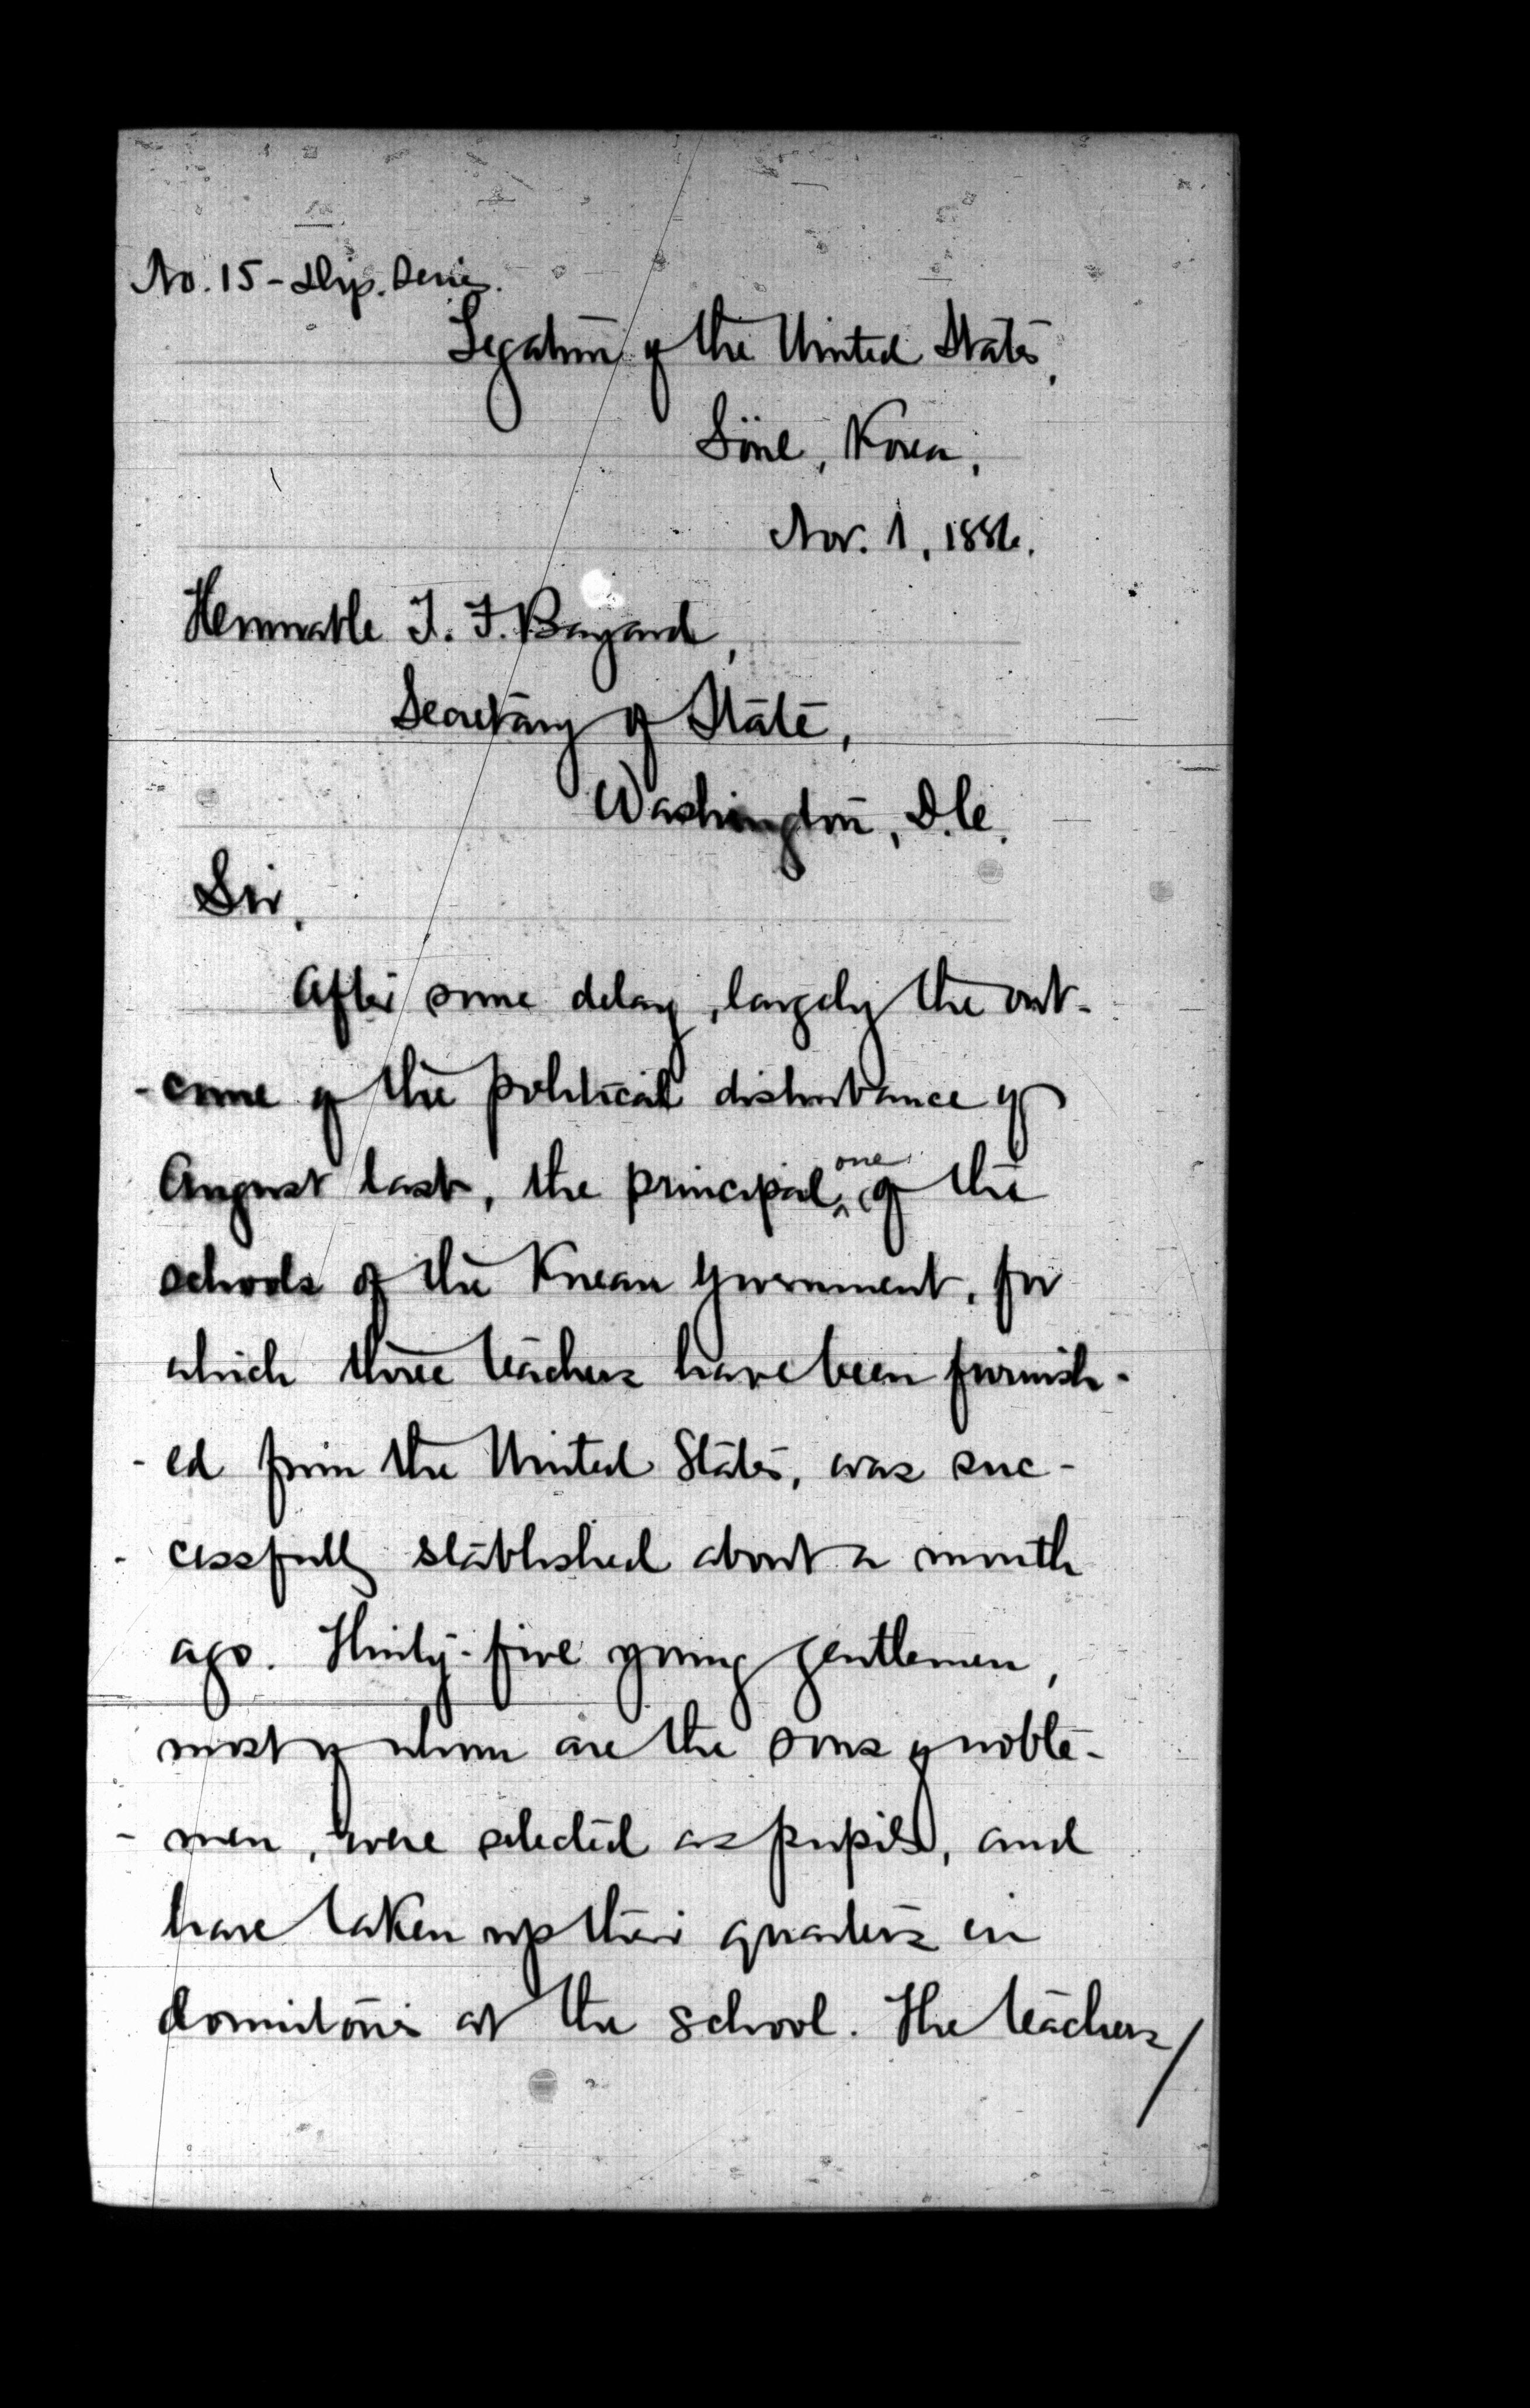 No. 15 - Dip. Series.
Legation of the United States,
Söul, Korea,
Nov. 1, 1886.
Honorable T. F. Bayard,
Secretary of State,
Washington, D.C.
Sir,
After some delay, largely the out-
-come of the political disturbance of
August last, the principal ^one of the
schools of the Korean Government, for
which three teachers have been furnish-
-ed from the United States, was suc-
-cessfully established about a month
ago. Thirty-five young gentlemen,
most of whom are the sons of noble-
-men, were selected as pupils, and
have taken up their quarters in
dormitories at the school. The teachers/